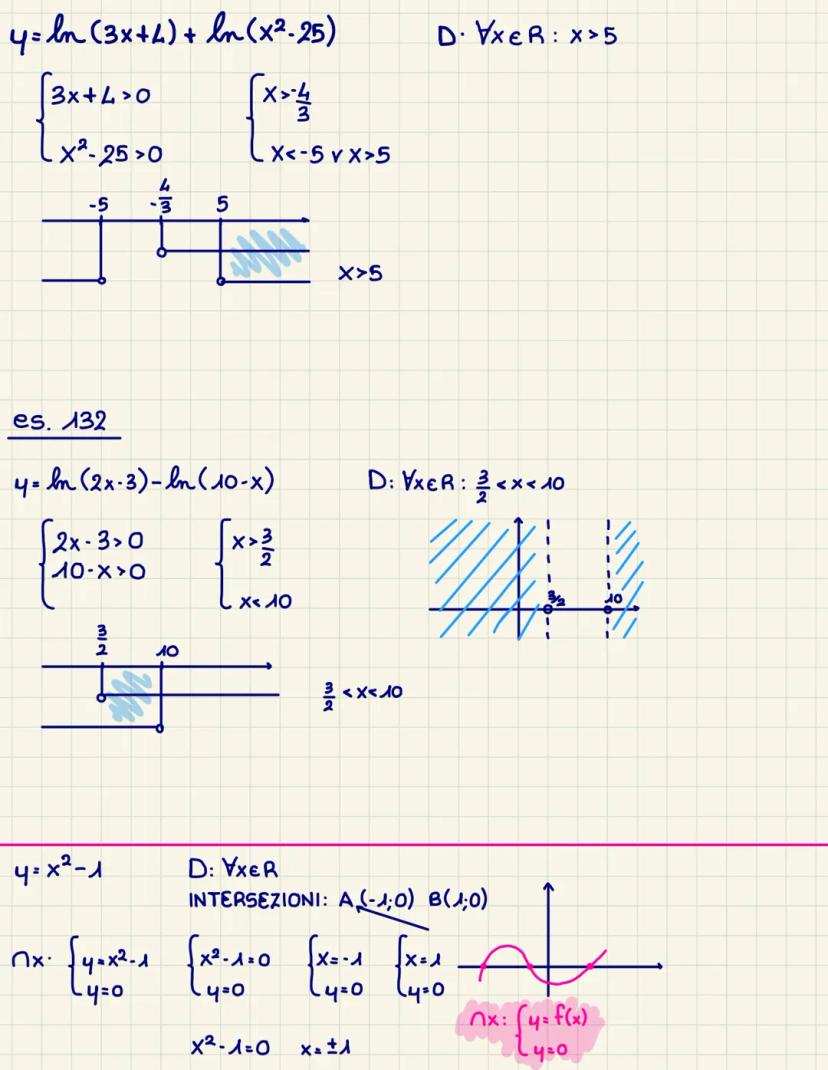 y = ln (3x+4) + ln (x²-25)    D: ∀x∈R : x>5
{3x+4>0    {x>-4/3
{x²-25>0    {x<-5 v x>5
-5  -4/3  5
x>5
es. 132
y = ln (2x-3) - ln (10-x)    D: ∀x∈R : 3/2 < x < 10
{2x-3>0    {x>3/2
{10-x>0    {x<10
3/2  10
3/2 < x < 10
3/2  10
y = x²-1    D: ∀x∈R
INTERSEZIONI: A(-1;0) B(1;0)
∩x: {y=x²-1    {x²-1=0    {x=-1    {x=1
{y=0    {y=0    {y=0    {y=0
x²-1=0    x=±1
∩x: {y=f(x)
{y=0